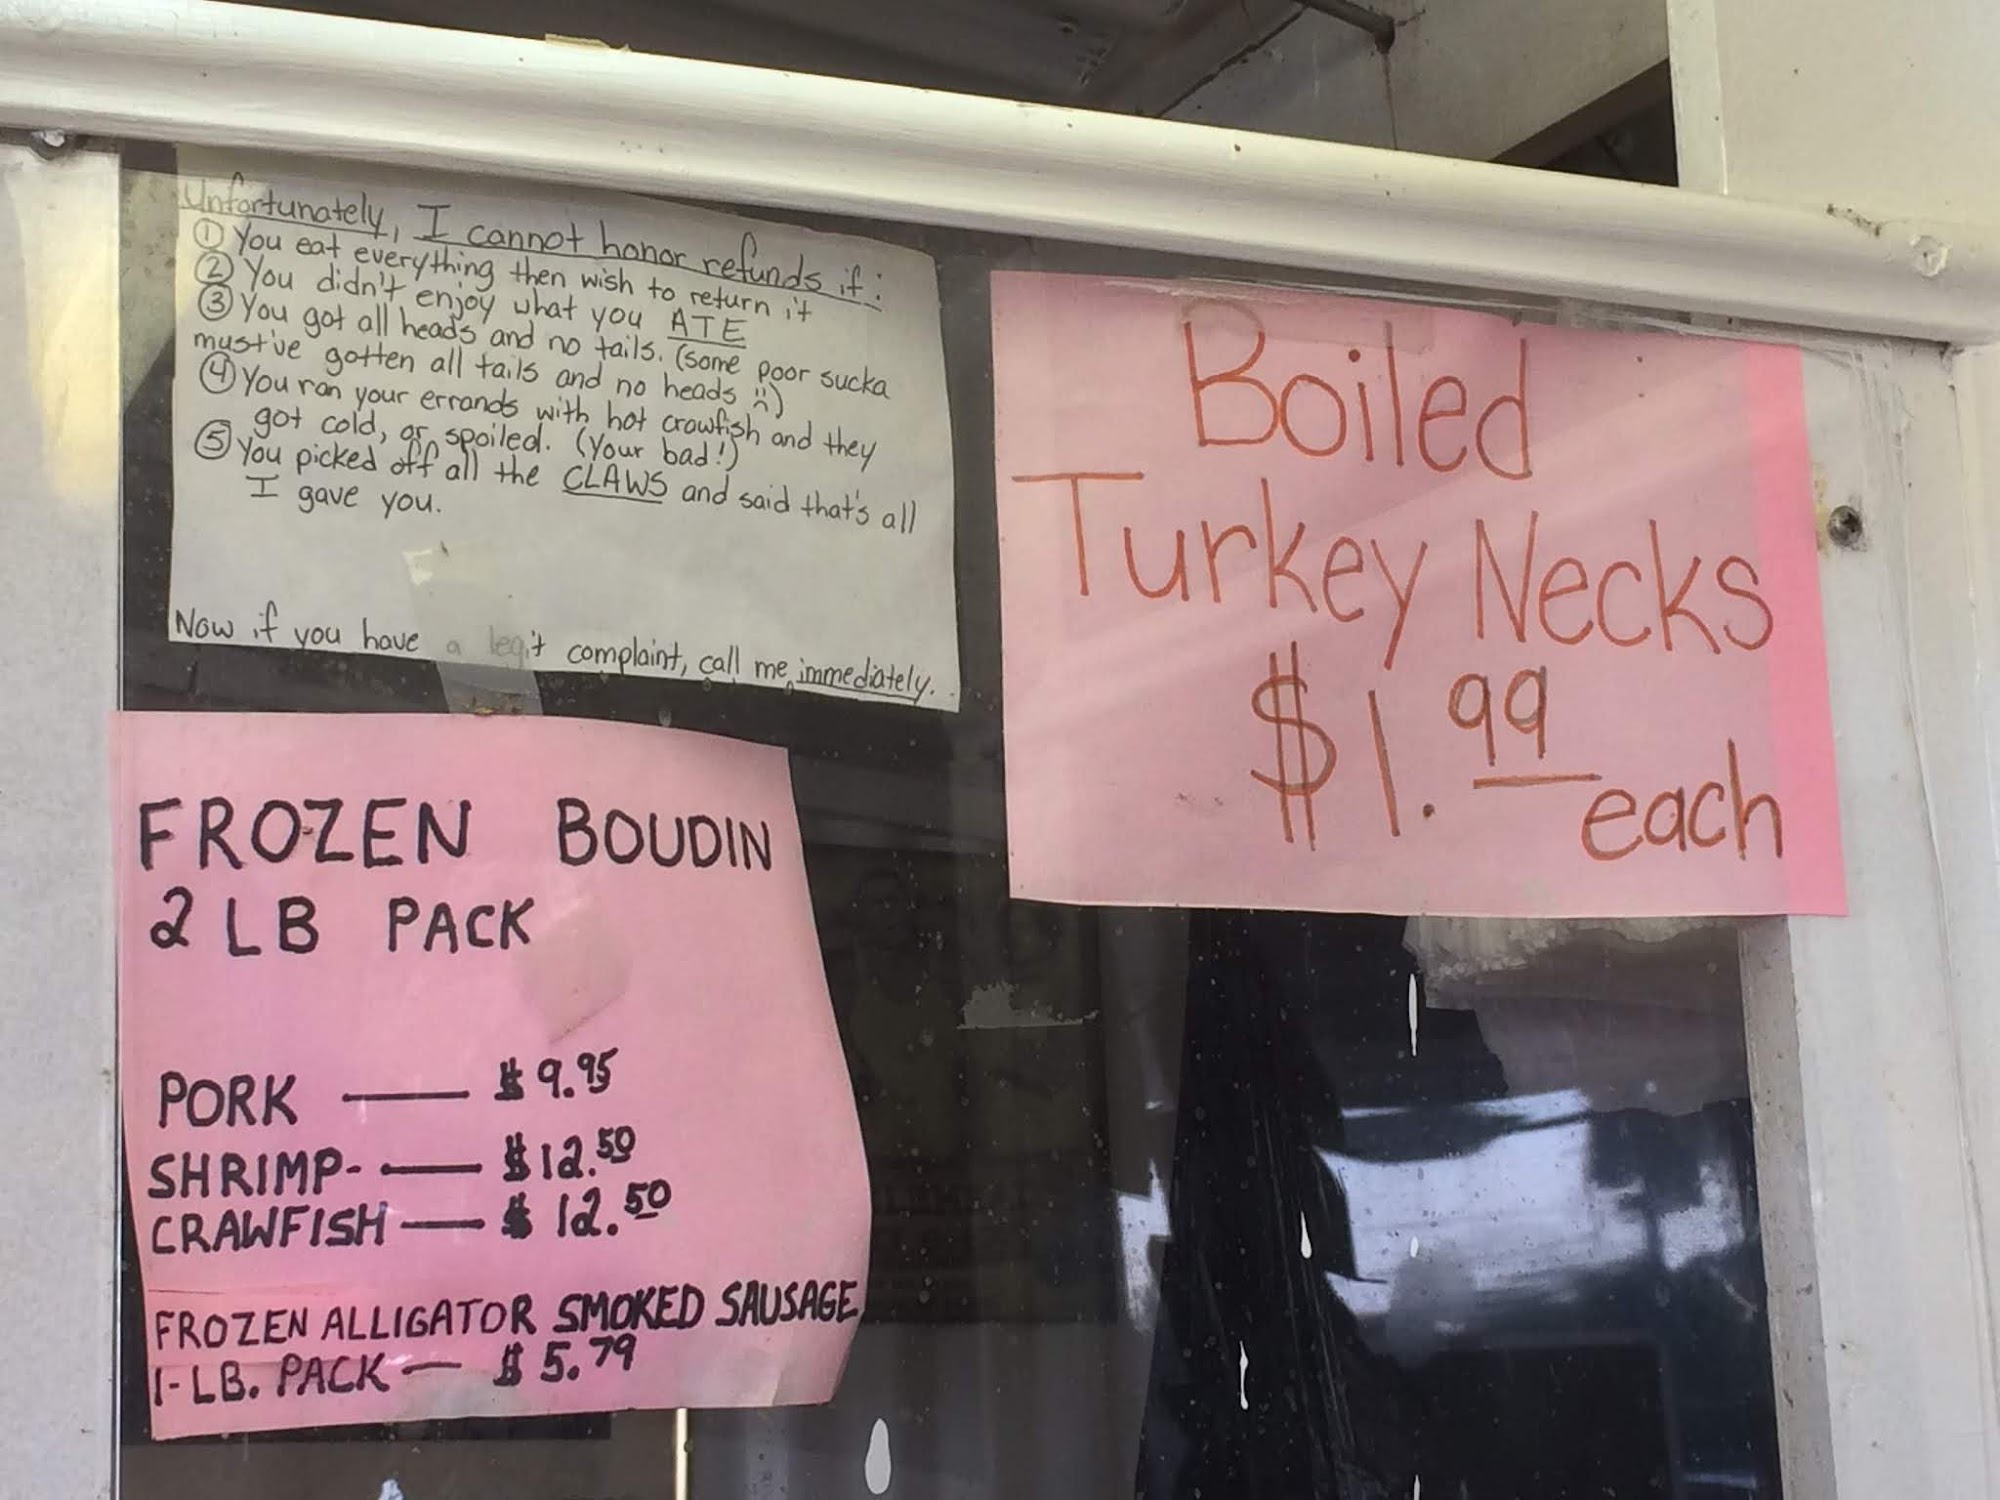 Unfortunately, I cannot honor refunds if:
① You eat everything then wish to return it
② You didn't enjoy what you ATE
③ You got all heads and no tails. (some poor sucka
must've gotten all tails and no heads :()
④ You ran your errands with hot crawfish and they
got cold, or spoiled. (Your bad!)
⑤ You picked off all the CLAWS and said that's all
I gave you.
Now if you have a legit complaint, call me immediately.
Boiled
Turkey Necks
$1.99 each
FROZEN BOUDIN
2 LB PACK
PORK — $9.95
SHRIMP- — $12.50
CRAWFISH — $12.50
FROZEN ALLIGATOR SMOKED SAUSAGE
1-LB. PACK — $5.79